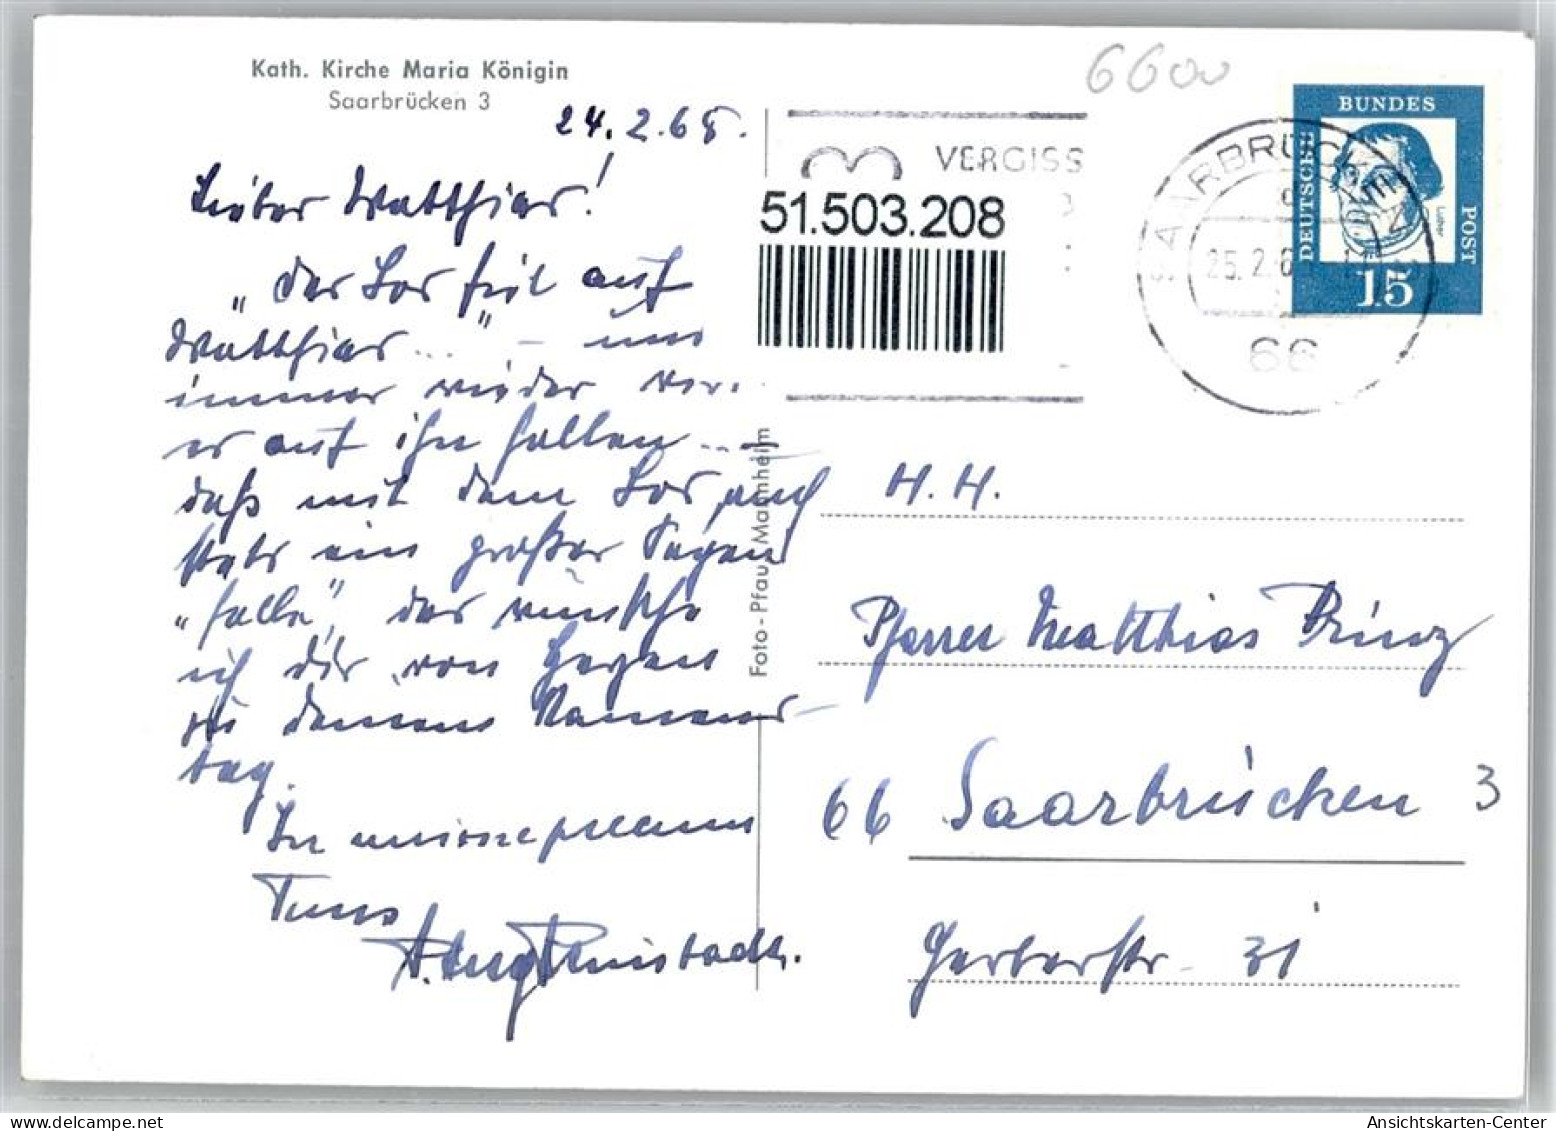 Kath. Kirche Maria Königin
Saarbrücken 3
24.2.65.
Lieber Matthias!
„Das Los fiel auf
Matthias..." – und
immer wieder
es auf ihn fallen... –
daß mit dem Los auch
stets ein großer Segen
„falle", das wünsche
ich dir von Herzen
zu deinem Namens-
tag.
In
Foto-Pfau, Mannheim
6600
VERGISS
51.503.208
SAARBRÜCKEN 2
25.2.6
66
DEUTSCHE
BUNDES
POST
Luther
15
H. H.
Pfarrer Matthias Prinz
66 Saarbrücken 3
Gerberstr. 31
Ansichtskarten-Center